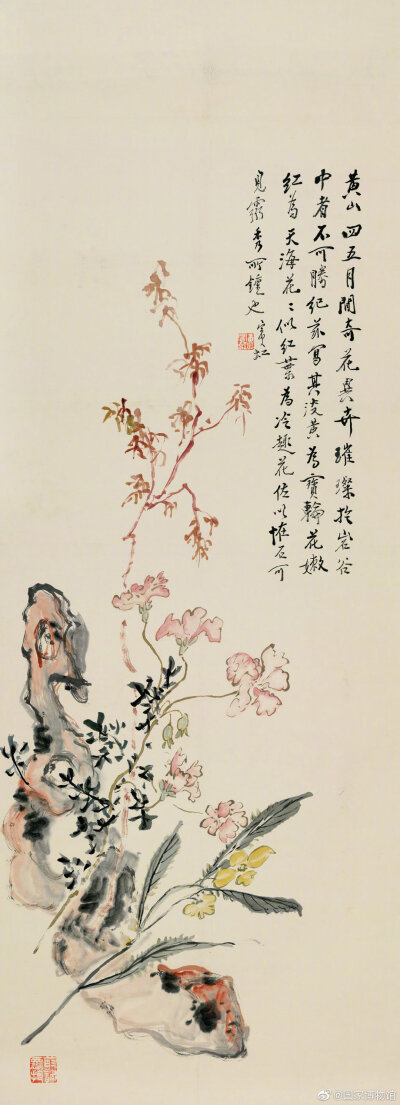 黃山四五月間奇花異卉璀璨於岩谷
中者不可勝紀茲寫其淡黃為寶輪花嫩
紅為天海花花似紅葉為冷趣花佐以怪石可
見靈秀所鍾也 賓虹
@國家博物館